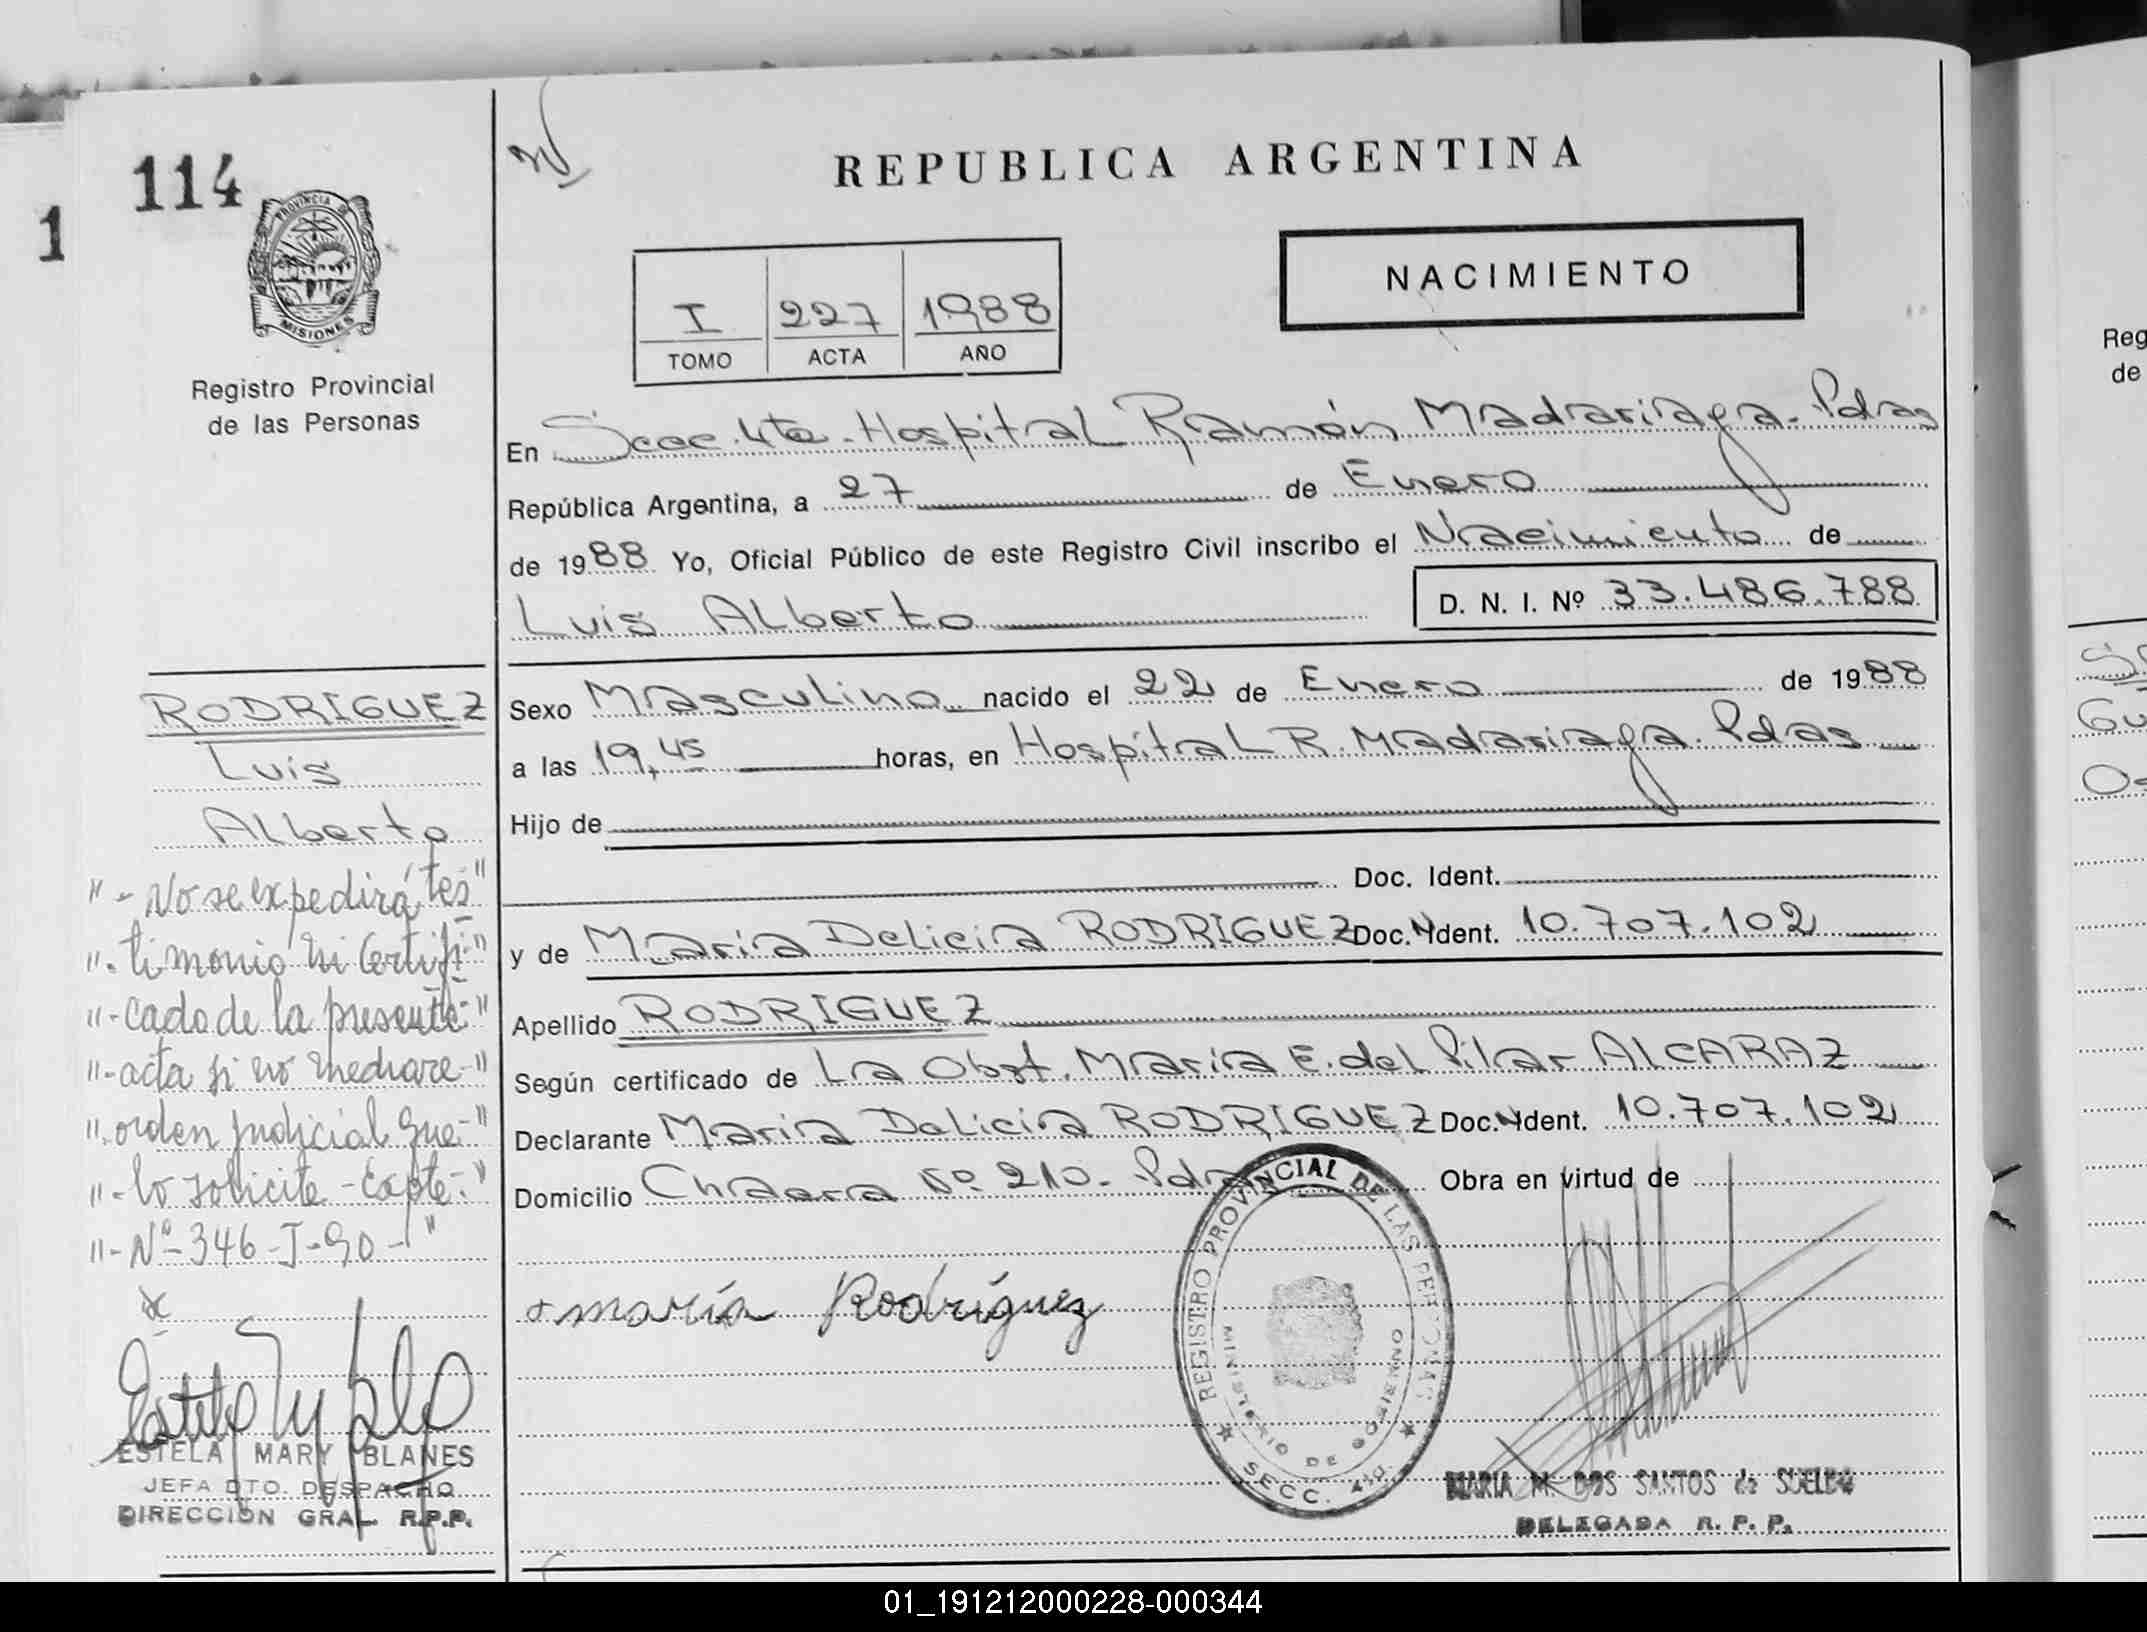 114
1
PROVINCIA DE
MISIONES
Registro Provincial
de las Personas
REPUBLICA ARGENTINA
NACIMIENTO
I 227 1988
TOMO ACTA AÑO
En Secc. 4ta. Hospital Ramón Madariaga. Pdas
República Argentina, a 27 de Enero
de 1988 Yo, Oficial Público de este Registro Civil inscribo el Nacimiento de
Luis Alberto D. N. I. Nº 33.486.788
Sexo Masculino nacido el 22 de Enero de 1988
a las 19,45 horas, en Hospital R. Madariaga. Pdas
Hijo de
Doc. Ident.
y de Maria Delicia RODRIGUEZ Doc. Ident. 10.707.102
Apellido RODRIGUEZ
Según certificado de La Obst. Maria E. del Pilar ALCARAZ
Declarante Maria Delicia RODRIGUEZ Doc. Ident. 10.707.102
Domicilio Chacra Nº 210. Obra en virtud de
maría Rodríguez
REGISTRO PROVINCIAL DE LAS PERSONAS
MINISTERIO DE GOBIERNO
SECC. 4ta.
MARIA M. DOS SANTOS de SUELDO
DELEGADA R. P. P.
RODRIGUEZ
Luis
Alberto
"- No se expedirá tes"
"- timonio ni Certifi-"
"- cado de la presente-"
"- acta si no mediare-"
"- orden judicial que-"
"- lo solicite - Expte-"
"- Nº 346-J-90-"
ESTELA MARY BLANES
JEFA DTO. DESPACHO
DIRECCION GRAL. R.P.P.
Reg
de
01_191212000228-000344